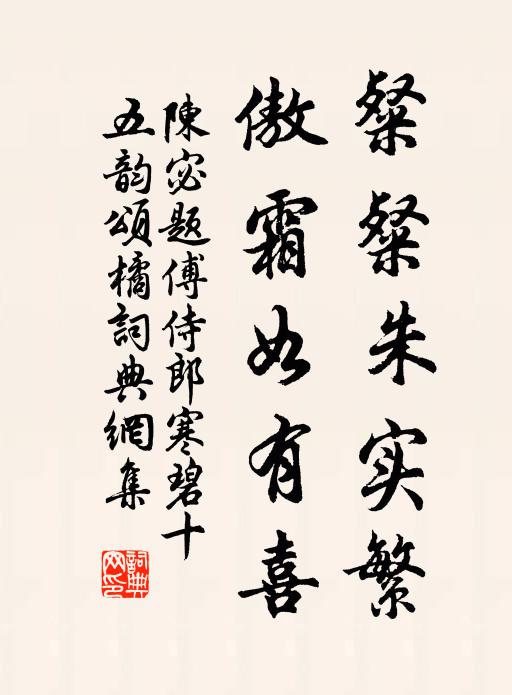 粲粲朱实繁
傲霜如有喜
陳宓题傅侍郎寒碧十
五韵頌橘詞典網集
詞典网印